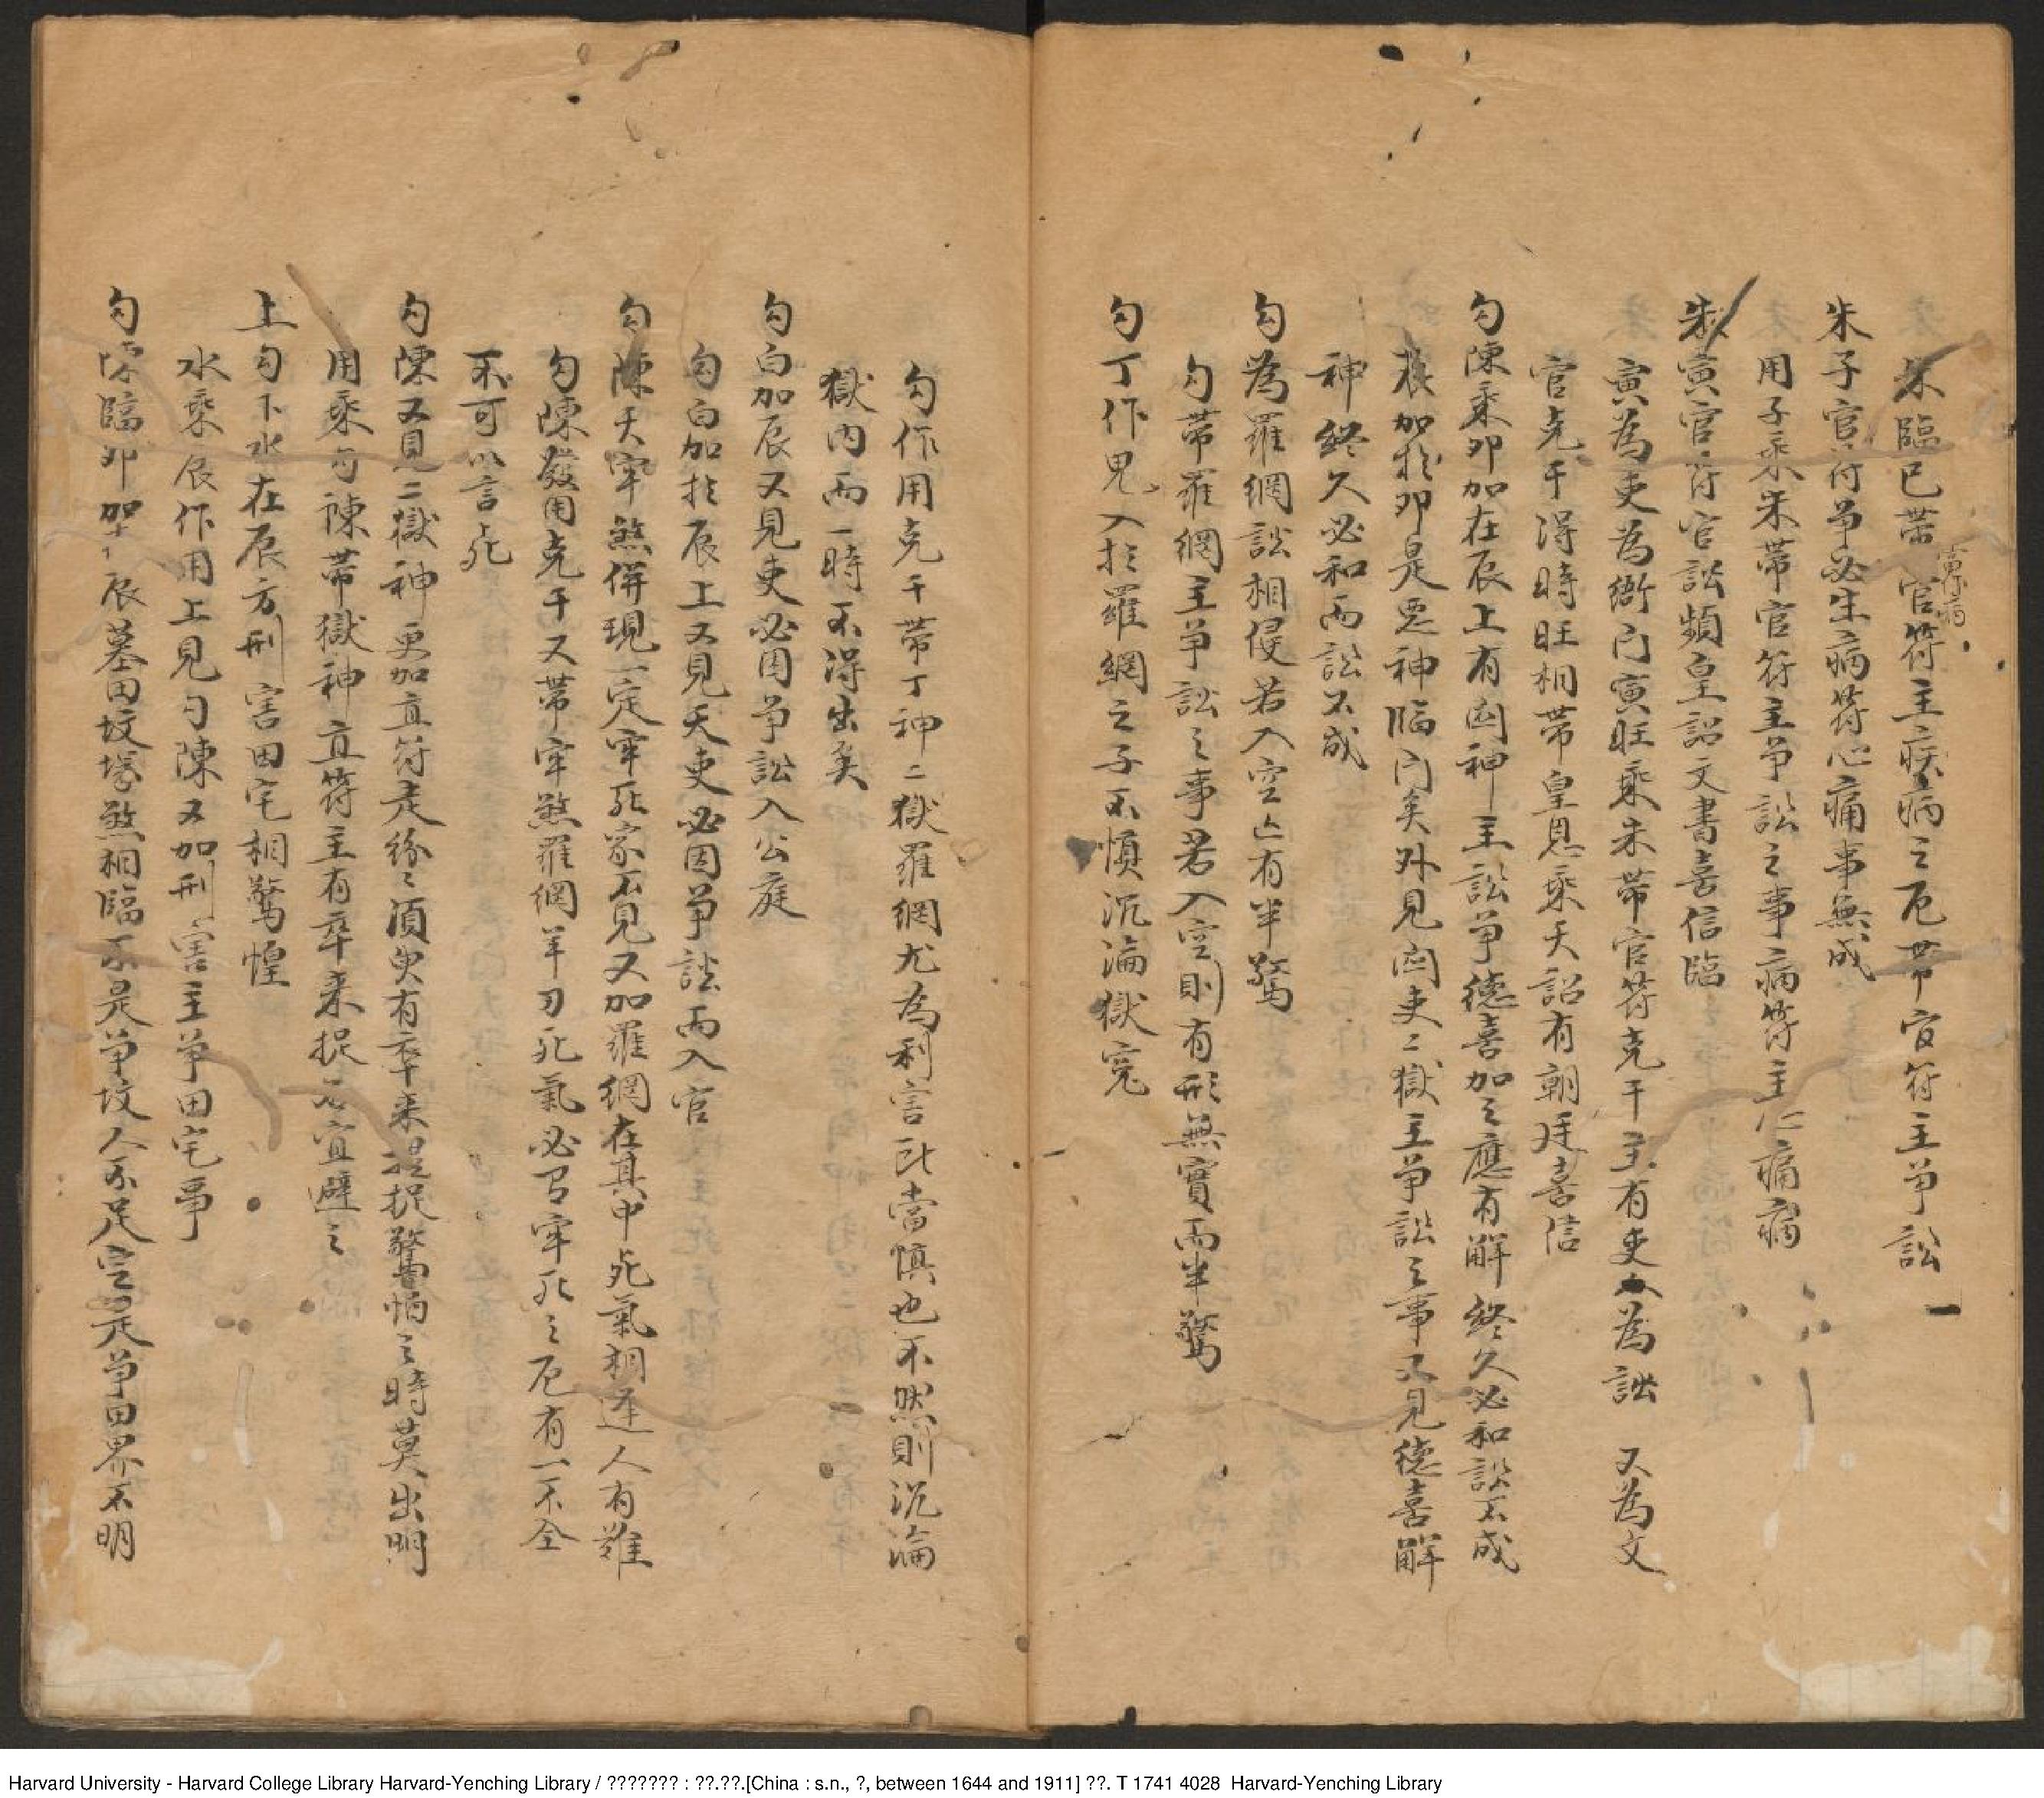 朱臨巳帶官符主疾病之厄帶官符主爭訟
朱子官符爭必生病符心痛事無成
用子乘朱帶官符主爭訟之事病符主心痛病
朱寅官符官訟頻皇詔文書喜信臨
寅為吏為衙門寅旺乘朱帶官符克干主有吏人為訟 又為文
官克干得時旺相帶皇恩乘天詔有朝廷喜信
勾陳乘卯加在辰上有凶神主訟爭德喜加之應有解終久必和訟不成
加於卯是惡神臨門矣外見凶吏二獄主爭訟之事又見德喜解
神終久必和而訟不成
勾為羅網訟相侵若入空亡有半驚
勾帶羅網主爭訟之事若入空則有形無實而半驚
勾丁作鬼入於羅網之子不慎沉淪獄冤
勾作用克干帶丁神二獄羅網尤為利害此當慎也不然則沉淪
獄內而一時不得出矣
勾白加辰又見吏必因爭訟入公庭
勾白加於辰上又見天吏必因爭訟而入官
勾陳天牢煞併現一定牢死家不見又加羅網在其中死氣相逢人有難
勾陳發用克干又帶牢煞羅網羊刃死氣必有牢死之厄有一不全
不可以言死
勾陳又見二獄神更加直符走紛〻須臾有卒來提捉驚怕之時莫出門
用乘勾陳帶獄神直符主有卒來捉 宜避之
上勾下水在辰方刑害田宅相驚惶
水乘辰作用上見勾陳又加刑害主爭田宅事
勾陳臨卯加辰墓田墳塚煞相臨不是爭墳人不足定是爭田界不明
Harvard University - Harvard College Library Harvard-Yenching Library / ??????? : ??.??.[China : s.n., ?, between 1644 and 1911] ??. T 1741 4028 Harvard-Yenching Library